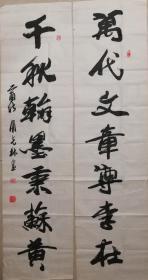 萬代文章尊李杜
千秋翰墨秉蘇黄